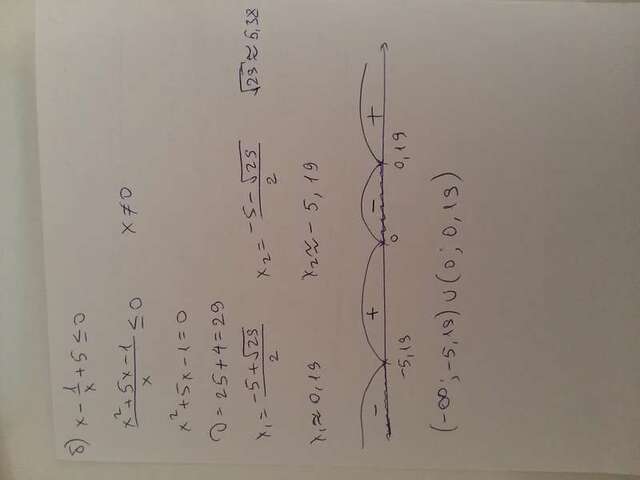 б) x - 1/x + 5 ≤ 0
(x² + 5x - 1)/x ≤ 0 x ≠ 0
x² + 5x - 1 = 0
D = 25 + 4 = 29
x₁ = (-5 + √29)/2 x₂ = (-5 - √29)/2 √29 ≈ 5,38
x₁ ≈ 0,19 x₂ ≈ -5,19
- + - +
-5,19 0 0,19
(-∞; -5,19) ∪ (0; 0,19)